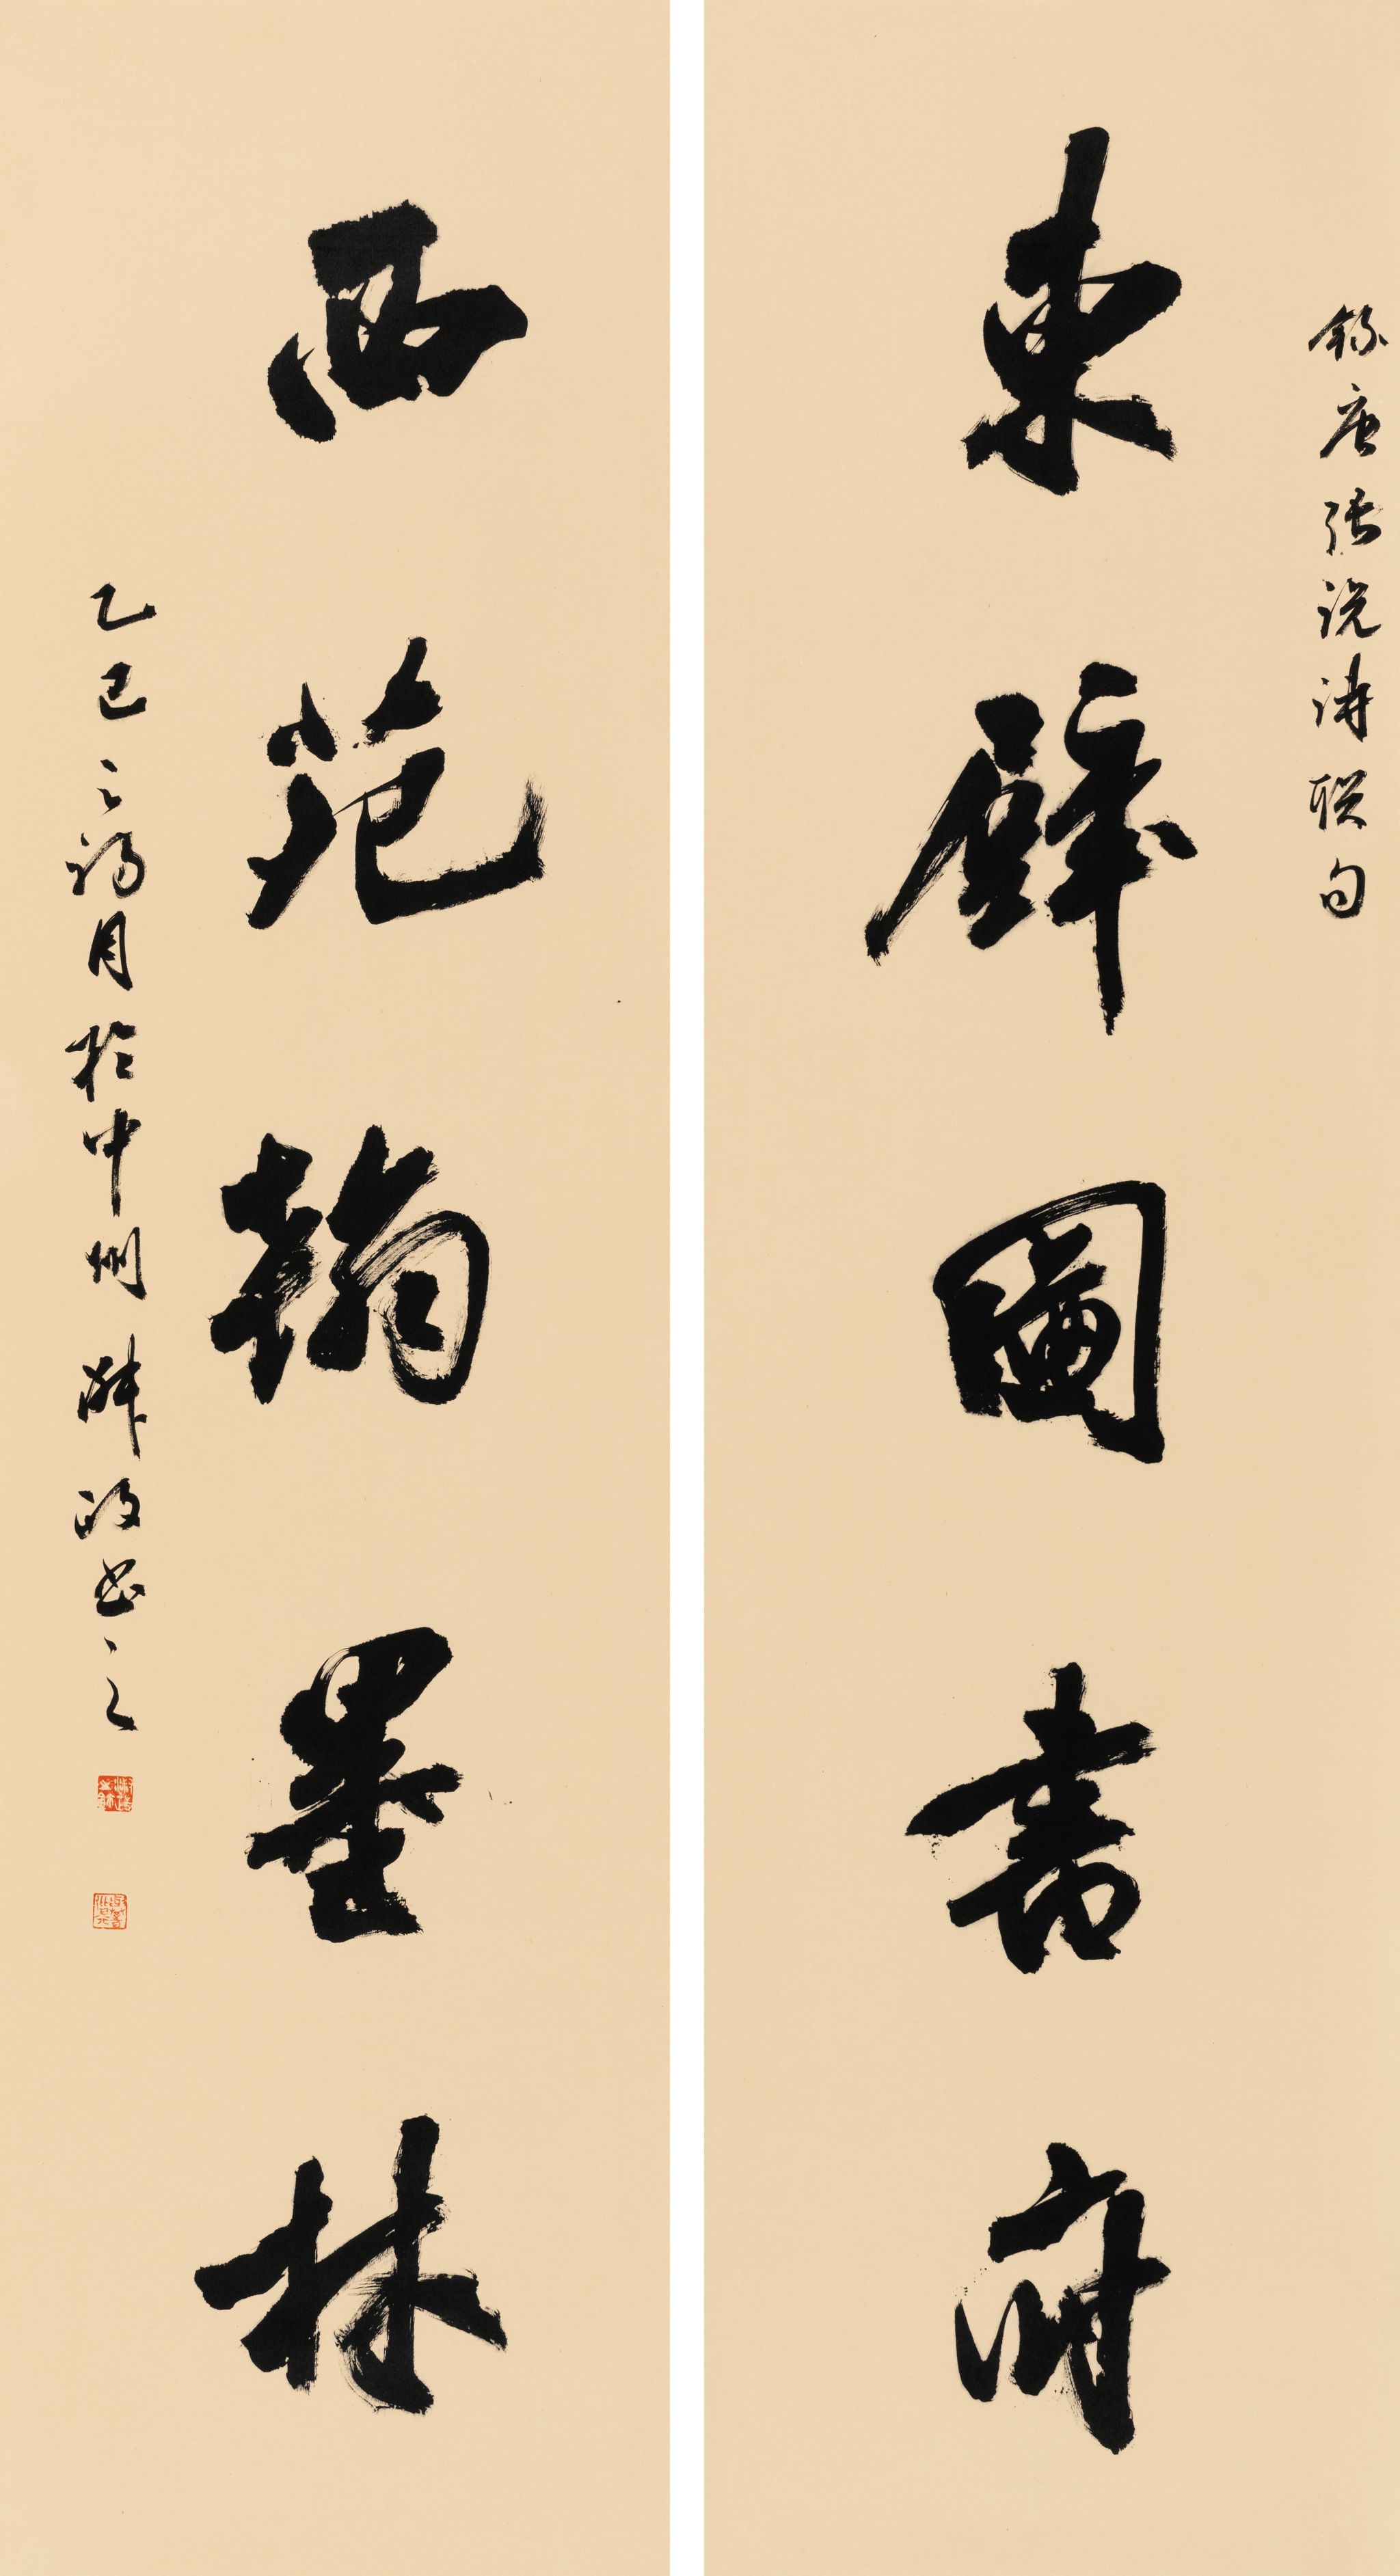 錄唐張說詩联句
東壁圖書府
西苑翰墨林
乙巳之月於中州政書之